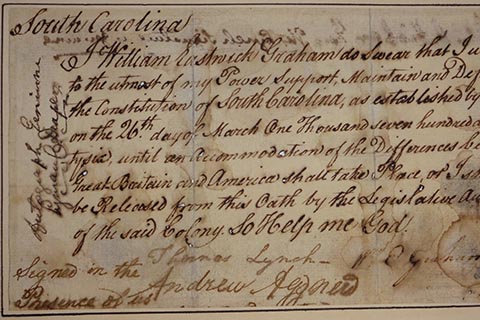 South Carolina
I William Eastwick Graham do Swear that I w
to the utmost of my Power Support, Maintain and Def
the Constitution of South Carolina, as established by
on the 26th day of March One Thousand seven hundred a
tysix, until an Accommodation of the Differences be
Great Britain and America shall take Place, or I sh
be Released from this Oath by the Legislative Au
of the said Colony So Help me God.
Signed in the Thomas Lynch W E Graham
Presence of us Andrew
Autograph Genuine